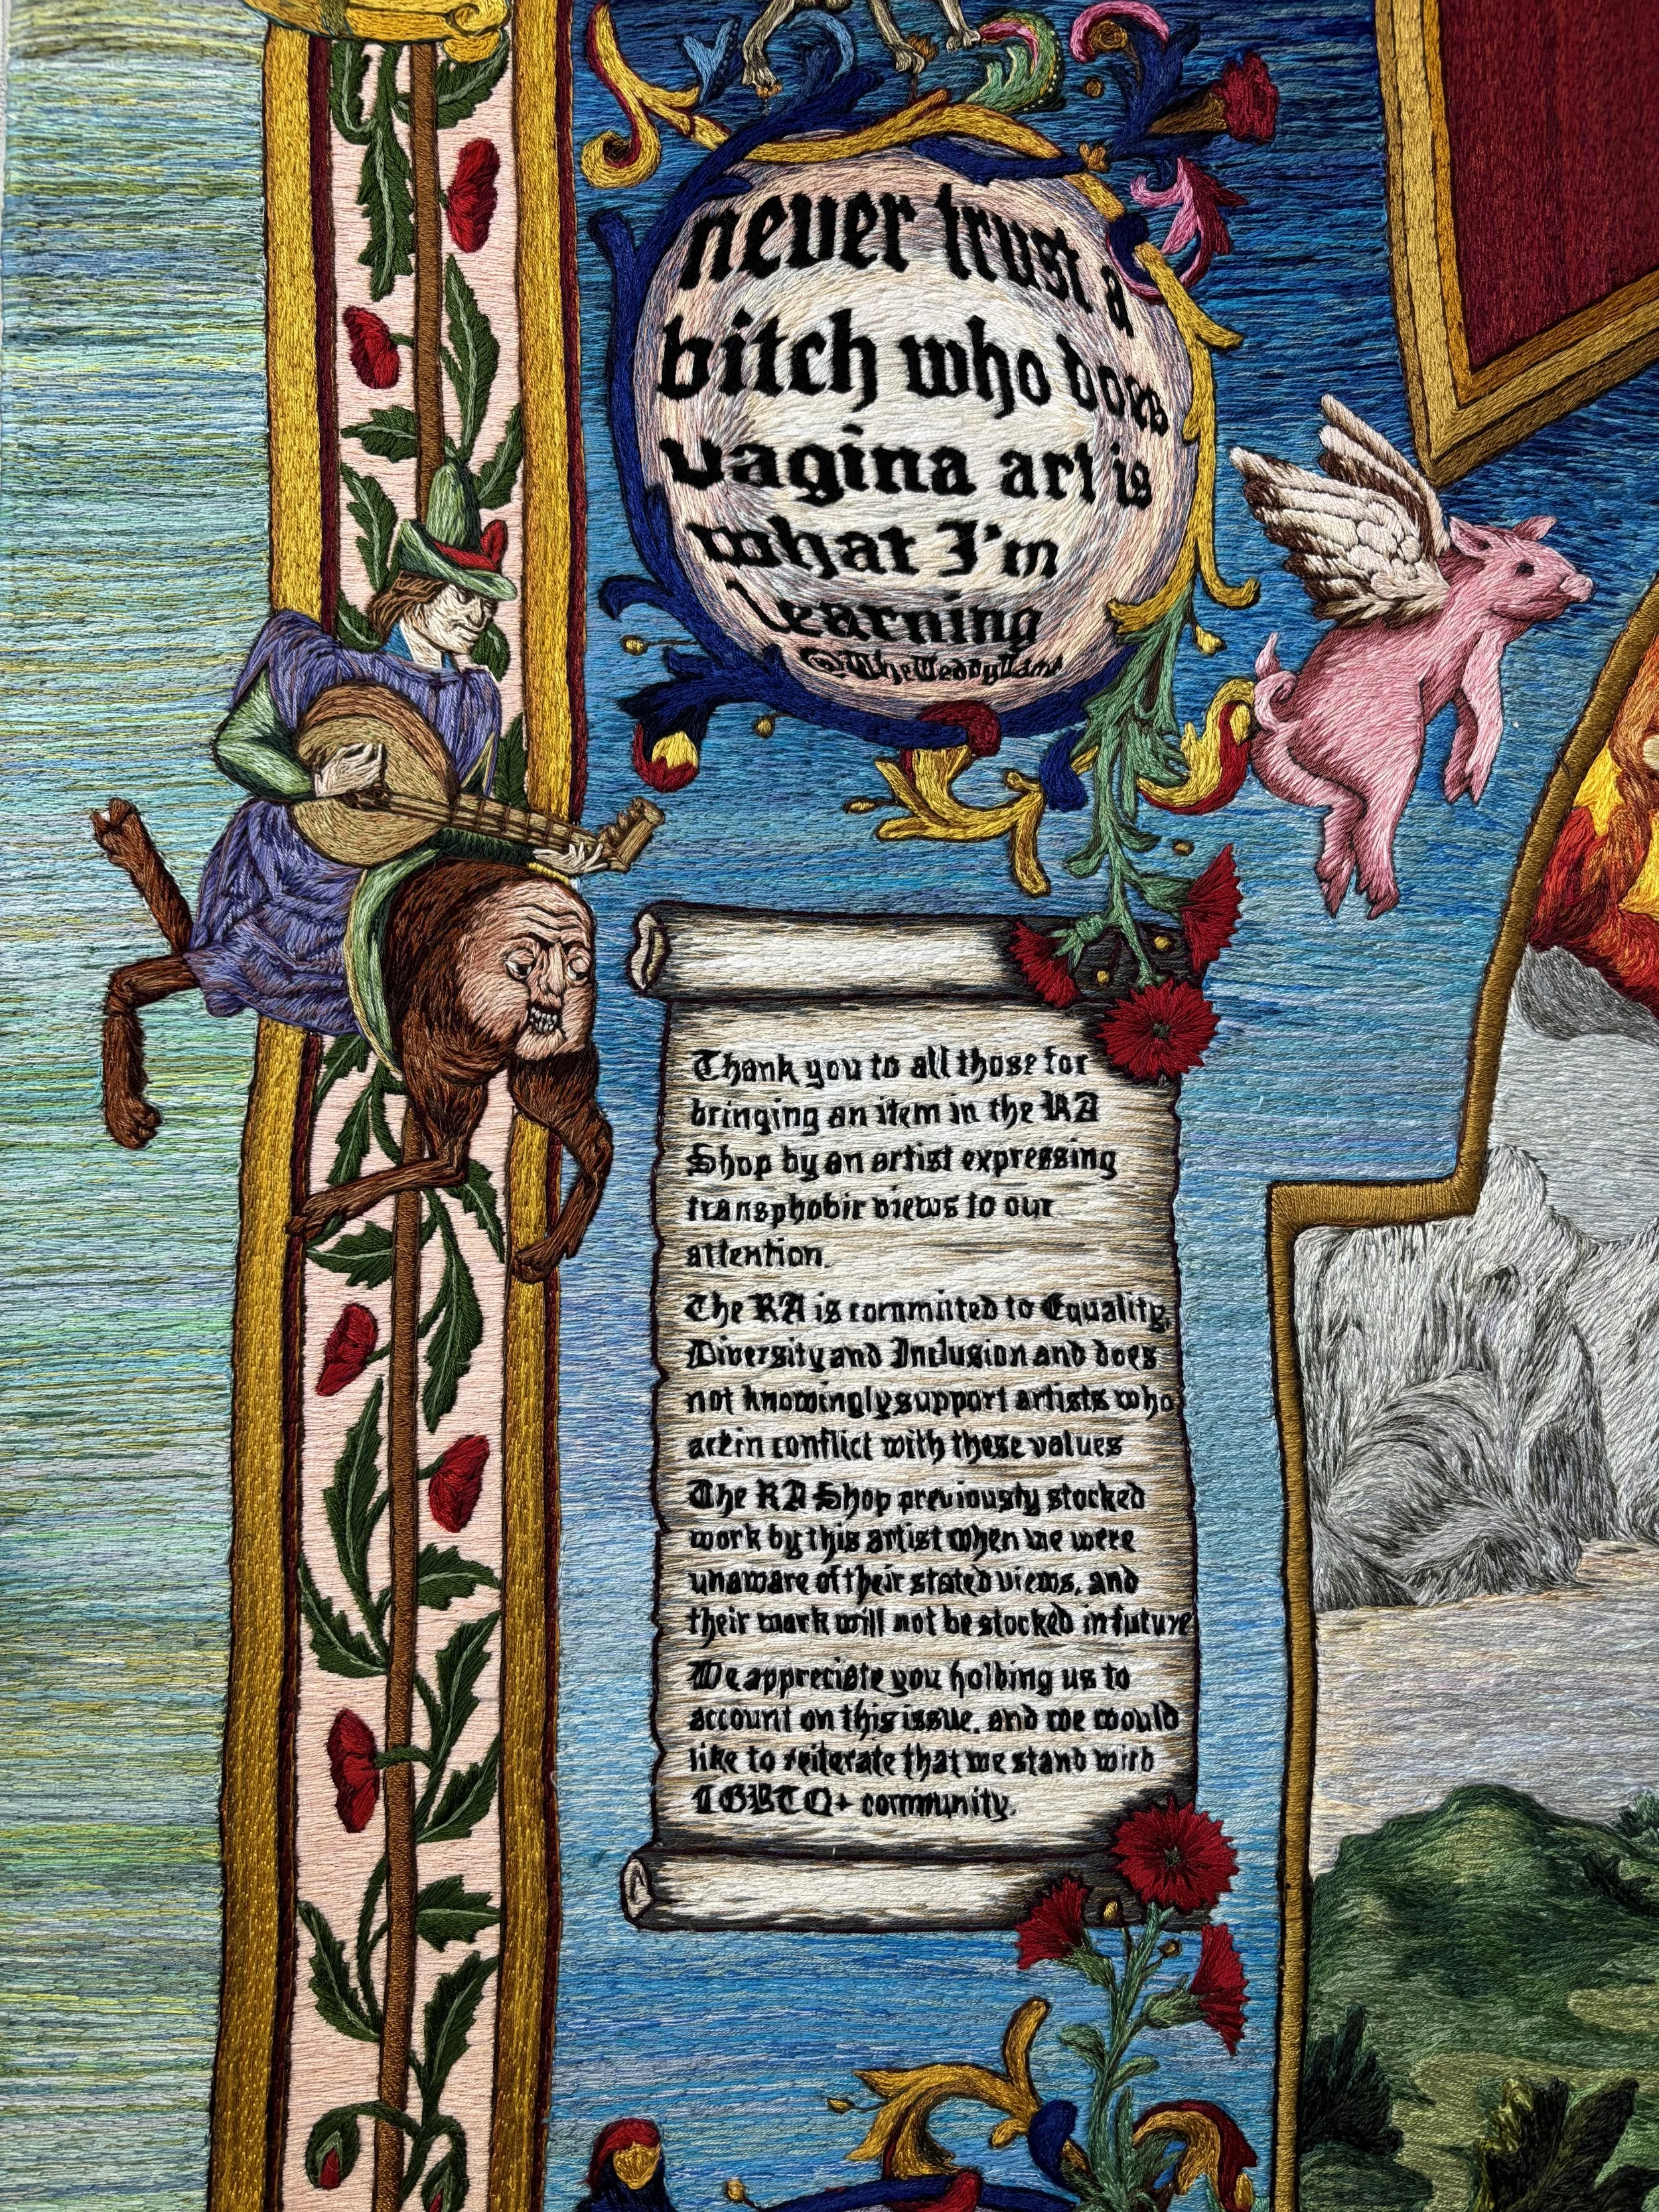 never trust a
bitch who does
vagina art is
what I'm
learning
Thank you to all those for
bringing an item in the RA
Shop by an artist expressing
transphobic views to our
attention.
The RA is committed to Equality,
Diversity and Inclusion and does
not knowingly support artists who
act in conflict with these values
The RA Shop previously stocked
work by this artist when we were
unaware of their stated views, and
their work will not be stocked in future
We appreciate you holding us to
account on this issue, and we would
like to reiterate that we stand with
LGBTQ+ community.